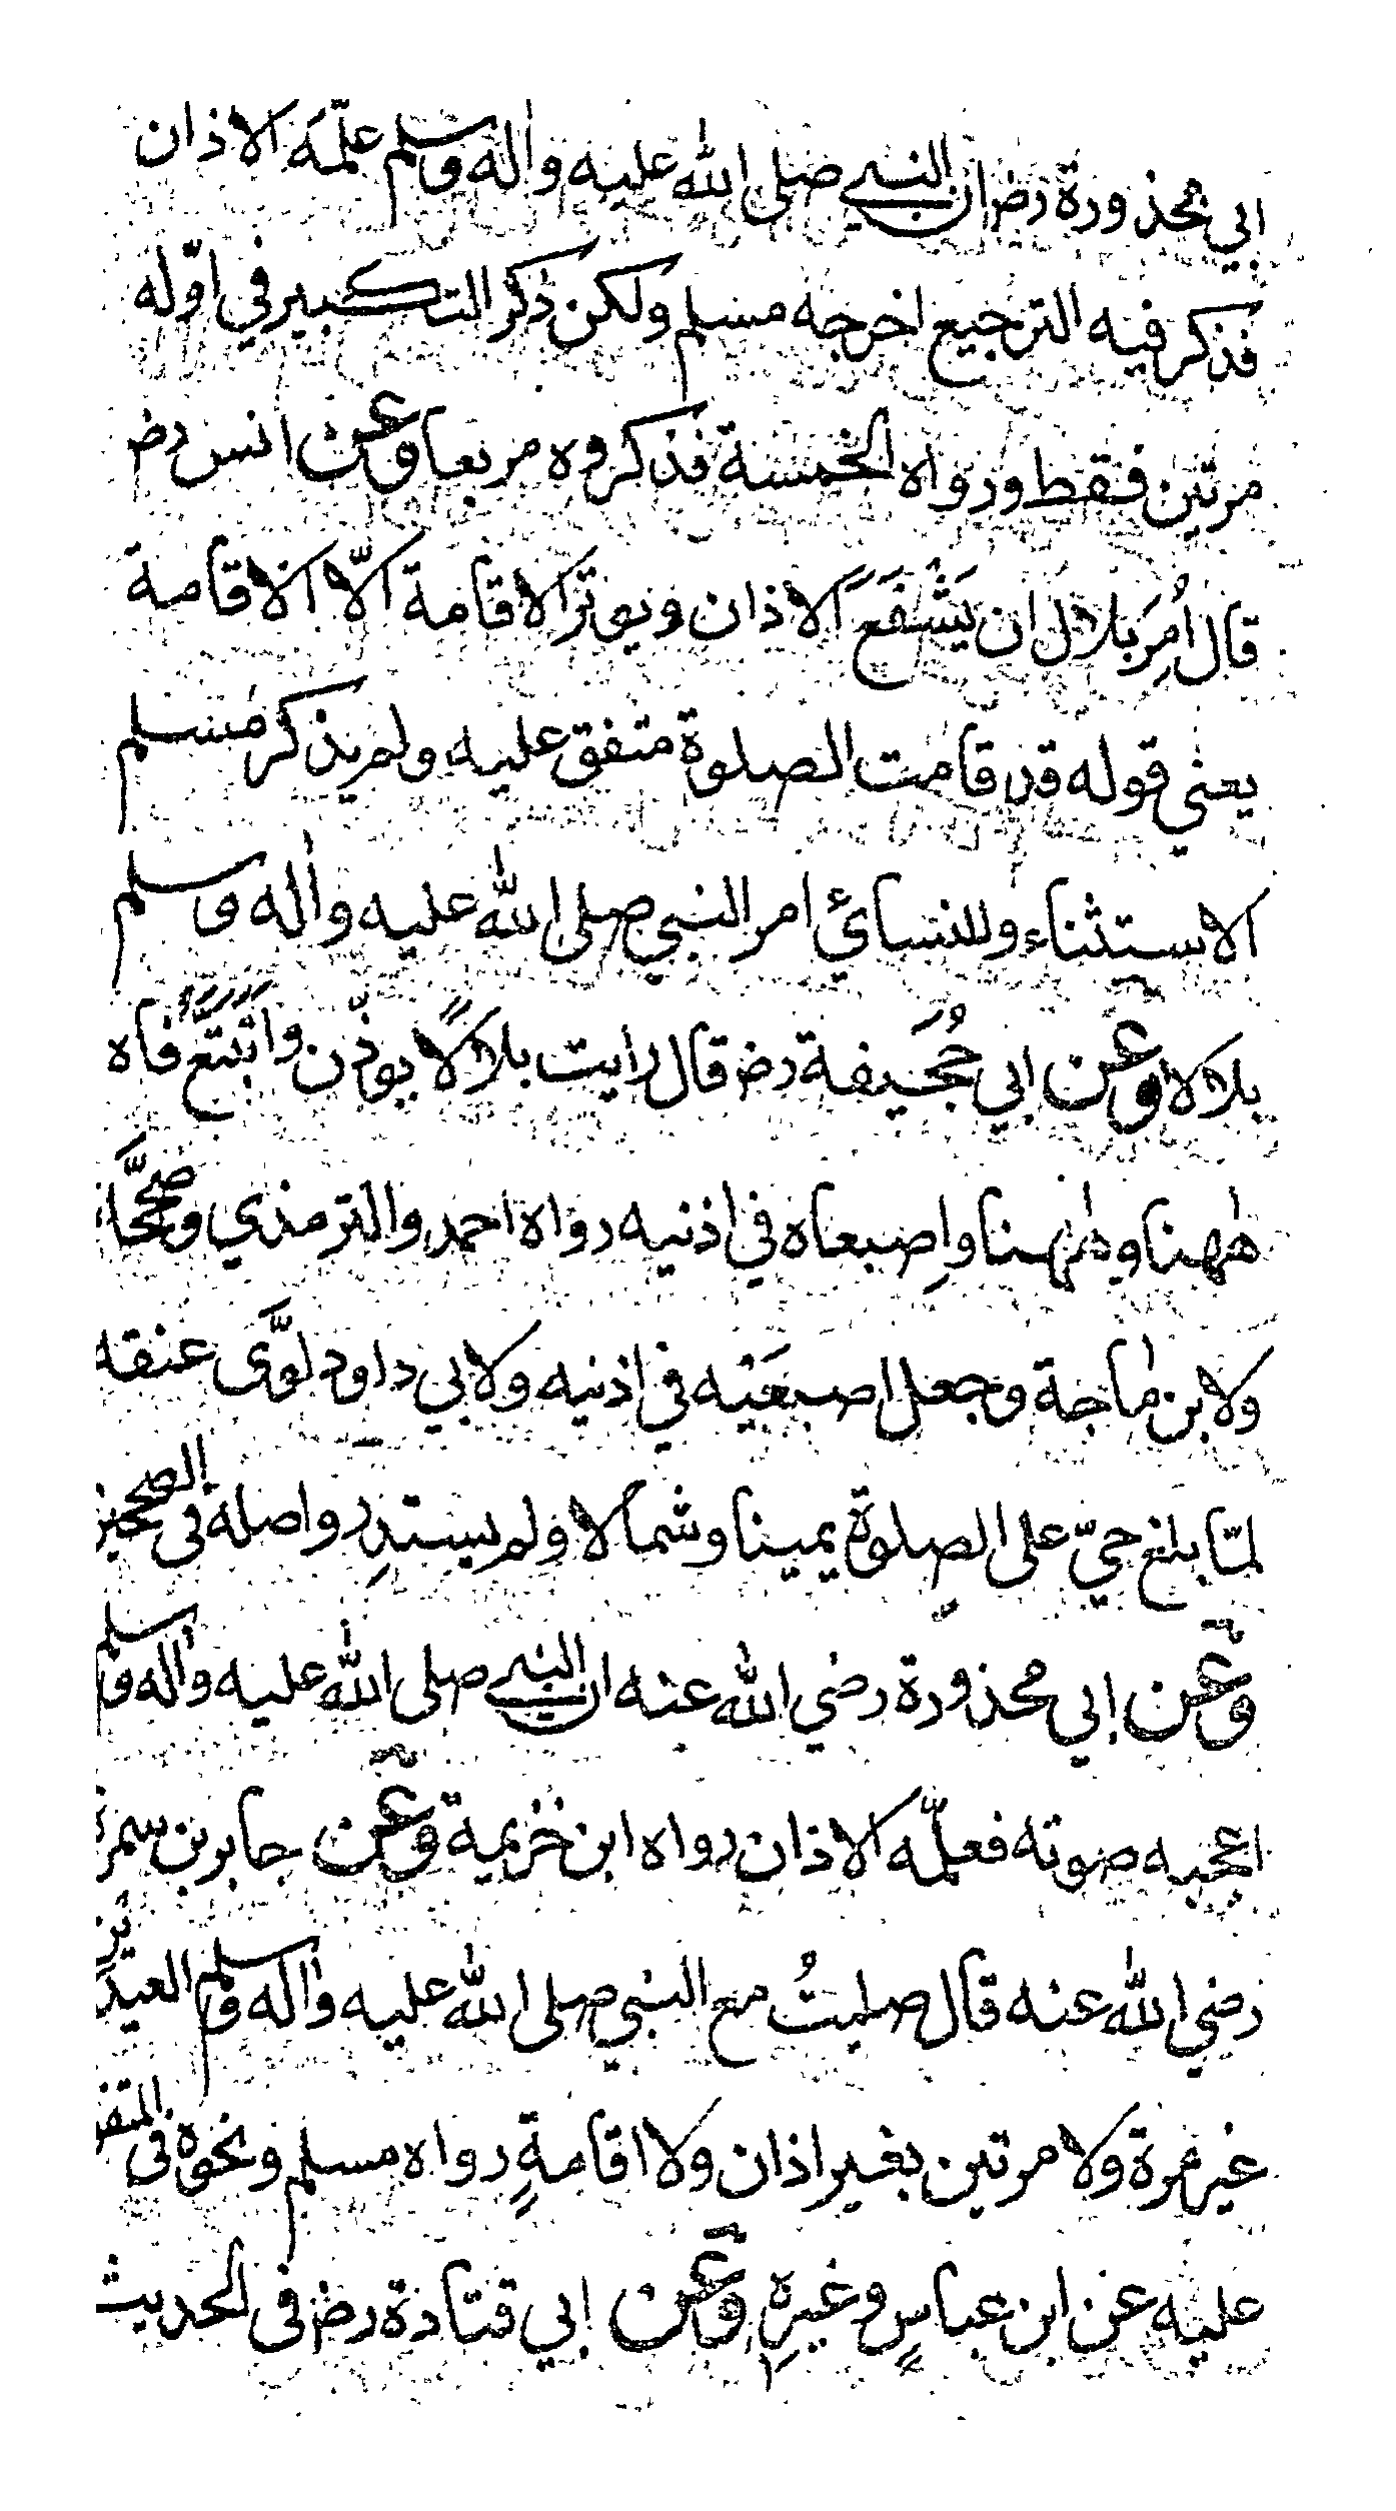 ابي محذورة رض ان النبي صلى الله عليه واله وسلم علمه الاذان
فذكر فيه الترجيع اخرجه مسلم ولكن ذكر التكبير في اوّله
مرتين فقط ورواه الخمسة فذكروه مربعا وعن انس رض
قال اُمِرَ بلال ان يَشْفَعَ الاذان ويوتر الاقامة الّا الاقامة
يعني قوله قد قامت الصلوة متفق عليه ولم يذكر مسلم
الاستثناء وللنسائي امر النبي صلى الله عليه واله وسلم
بلالا وعن ابي جُحَيفة رض قال رايت بلالاً يوذّن واَتَتَبَّعُ فاه
ههنا وههنا واِصبعاه في اذنيه رواه احمد والترمذي وصحّحَا
ولابن ماجة وجعل اصبعَيْه في اذنيه ولابي داود لوَّى عنقه
لمّا بلغ حيّ على الصلوة يمينا وشمالا ولم يستدِر واصله في الصحيحين
وعن ابي محذورة رضي الله عنه ان النبي صلى الله عليه واله وسلم
اعجبه صوته فعلّمه الاذان رواه ابن خزيمة وعن جابر بن سمرة
رضي الله عنه قال صليتُ مع النبي صلى الله عليه واله وسلم العيدين
غير مرة ولا مرتين بغير اذان ولا اقامةٍ رواه مسلم ونحوه في المتفق
عليه عن ابن عباسٍ وغيرِه وعن ابي قتادة رض فى الحديث